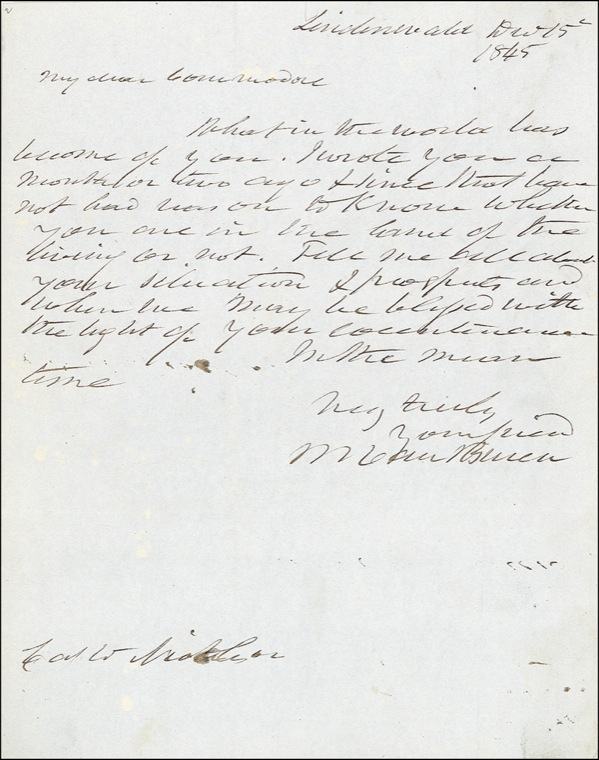 Lindenwald Dec 15
1845
My dear Commodore
What in the world has
become of you. I wrote you a
month or two ago & since that have
not had reason to know whether
you are in the land of the
living or not. Tell me all about
your situation & prospects and
when we may be blessed with
the light of your countenance
In the mean
time
Very truly
Your friend
M Van Buren
Nicholson